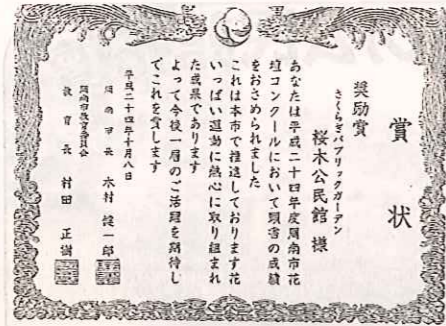 賞状
奨励賞
さくらぎパブリックガーデン
桜木公民館 様
あなたは平成二十四年度周南市花
壇コンクールにおいて頭書の成績
をおさめられました
これは本市で推進しております花
いっぱい運動に熱心に取り組まれ
た成果であります
よって今後一層のご活躍を期待し
てこれを賞します
平成二十四年十月八日
周南市長 木村健一郎
周南市教育委員会
教育長 村田正樹